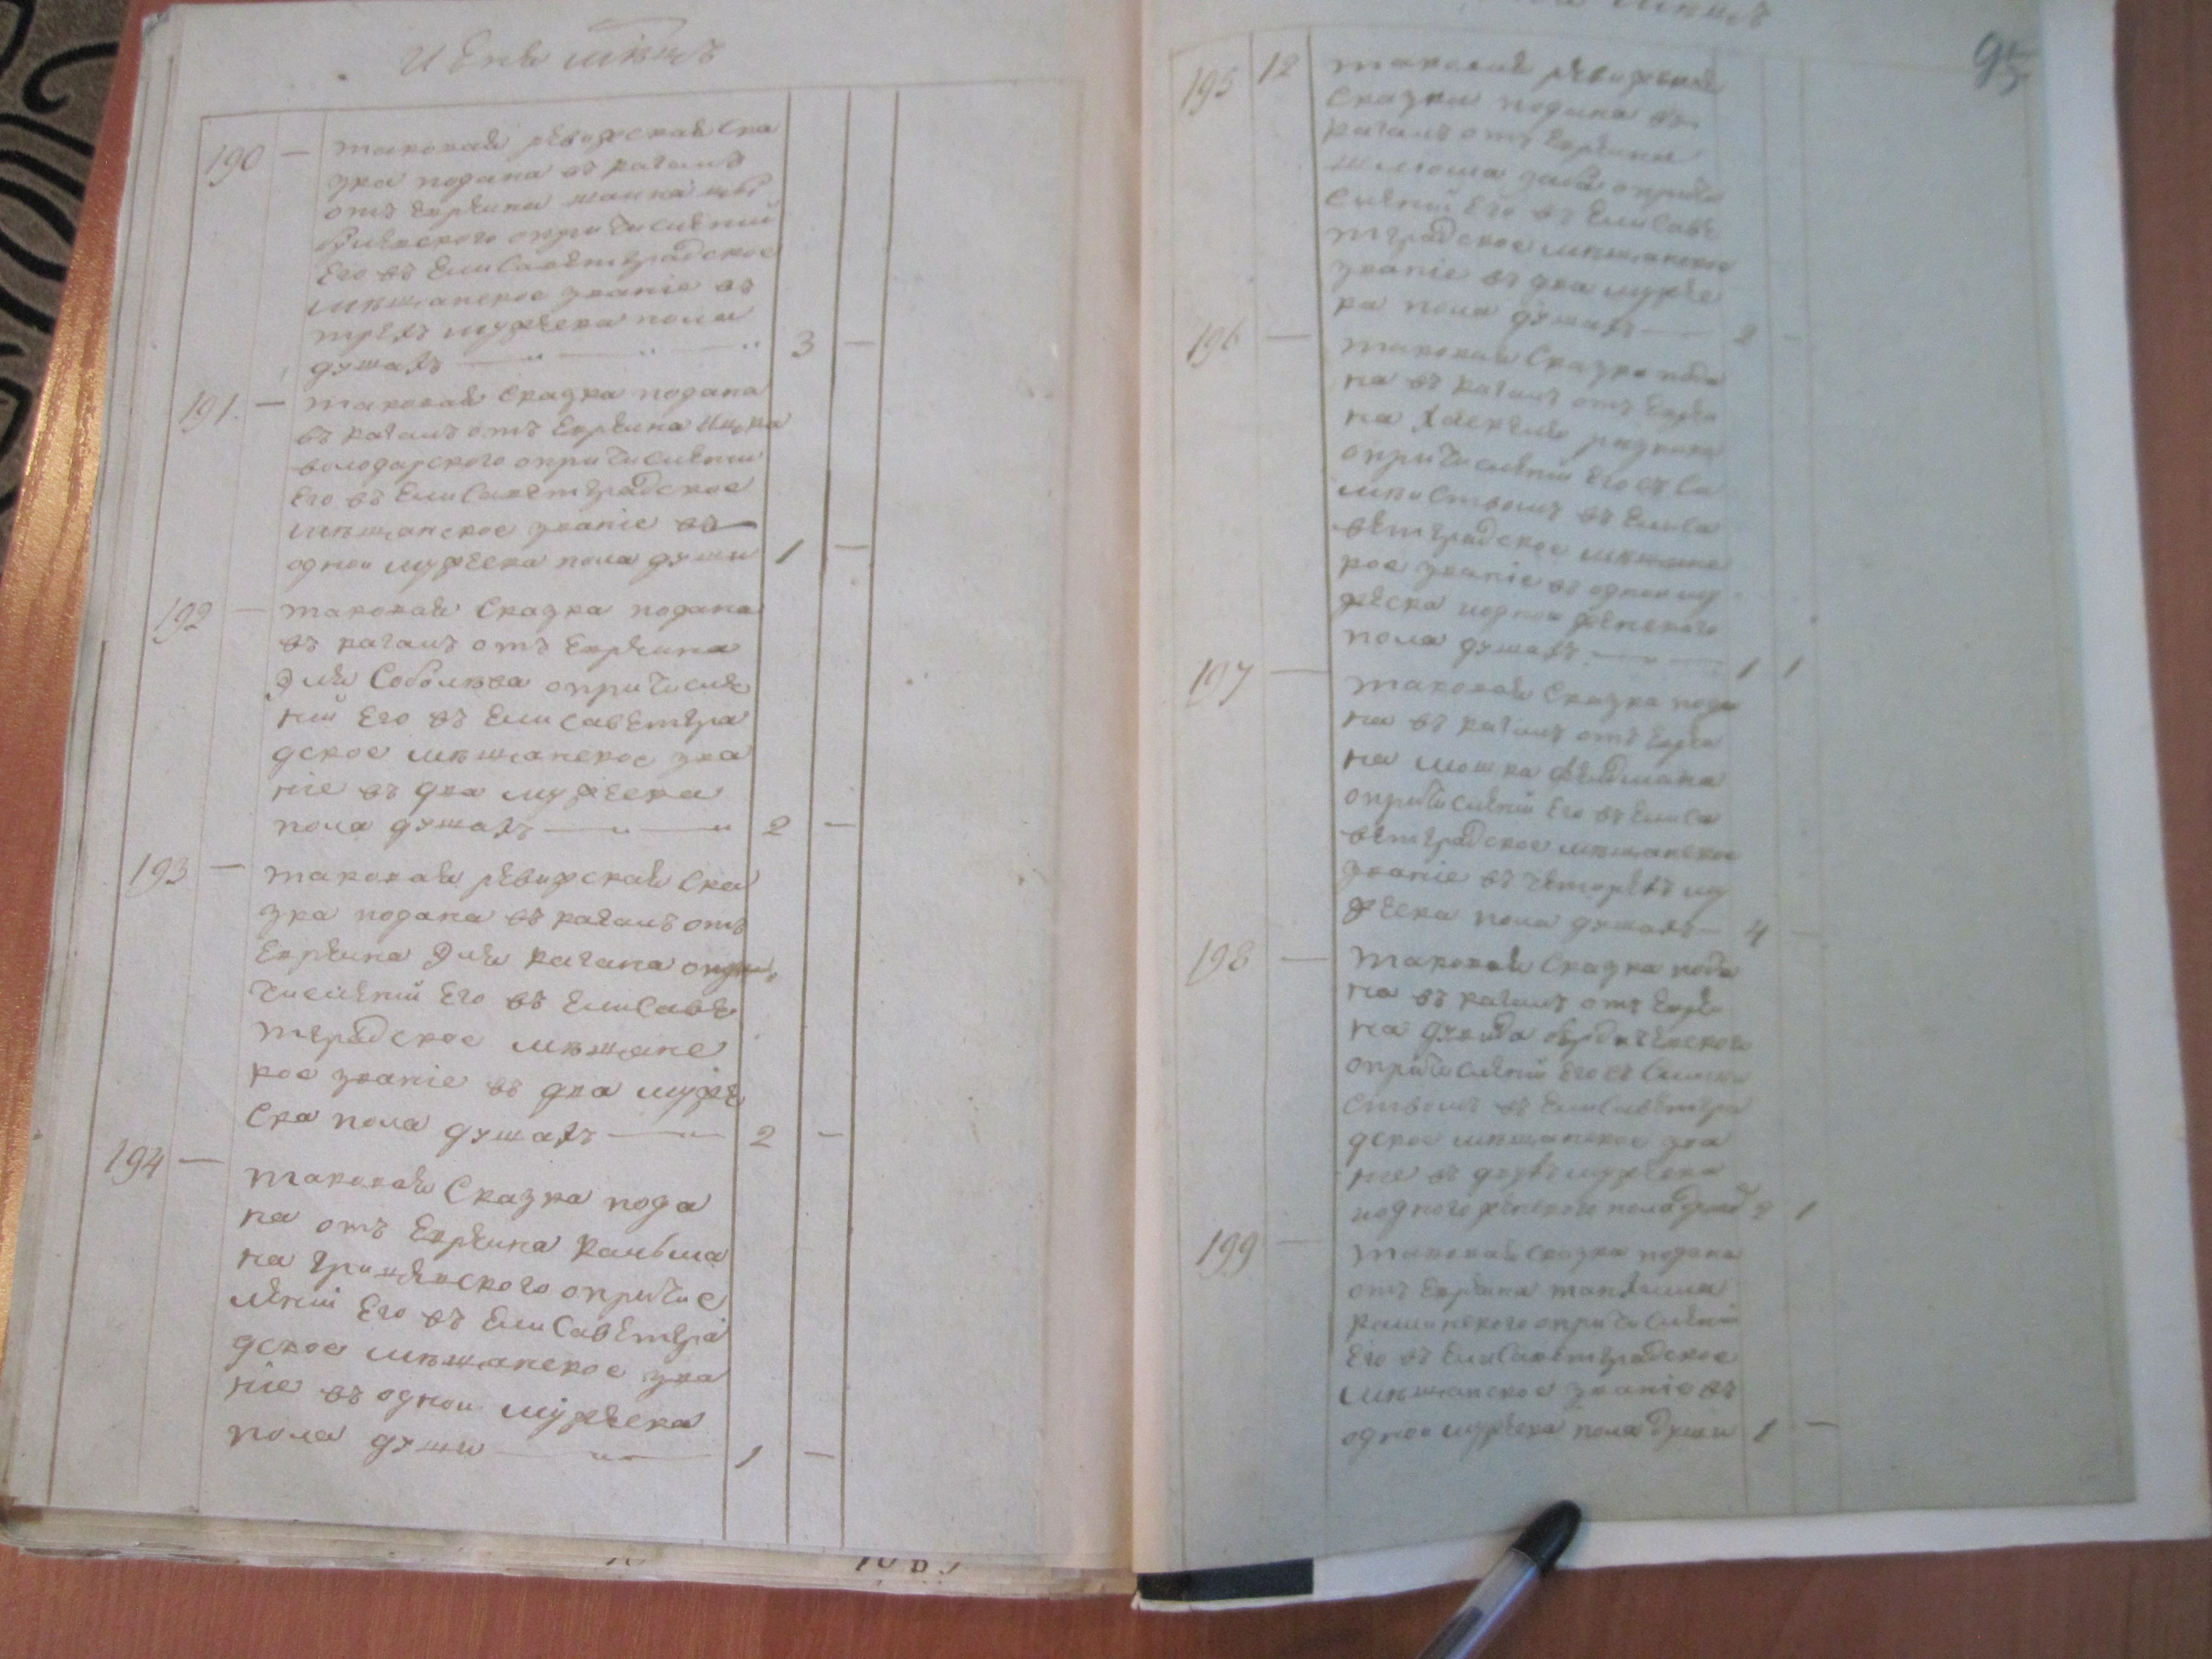 190 — таковая ревизская ска
зка подана въ кагалъ
отъ Евреина
о причисленіи
его въ Елисаветградское
мѣщанское званіе въ
трехъ мужеска пола
душахъ — 3 —
191. — таковая сказка подана
въ кагалъ отъ Евреина Ицка
володарского о причисленіи
его въ Елисаветградское
мѣщанское званіе въ
одной мужеска пола души 1 —
192 — таковая сказка подана
въ кагалъ отъ Евреина
Эля Соболева о причисле
ніи его въ Елисаветгра
дское мѣщанское зва
ніе въ два мужеска
пола душахъ — 2 —
193 — таковая ревизская ска
зка подана въ кагалъ отъ
Евреина Эля Кагана о при
численіи его въ Елисаве
тградское мѣщанс
кое званіе въ два муже
ска пола душахъ — 2 —
194 — таковая сказка пода
на отъ Евреина Кальма
на о причис
леніи его въ Елисаветгра
дское мѣщанское зва
ніе въ одной мужеска
пола души — 1 —
95
195 12 таковая ревизская
сказка подана въ
кагалъ отъ Евреина
о причи
сленіи его въ Елисаве
тградское мѣщанское
званіе въ два мужес
ка пола душахъ — 2 —
196 — таковая сказка пода
на въ кагалъ отъ Евреи
на
о причисленіи его съ се
мействомъ въ Елиса
ветградское мѣщанс
кое званіе въ одной му
жеска и одной женского
пола душахъ — 1 1
197 — таковая сказка пода
на въ кагалъ отъ Евреи
на Мошка Фельдмана
о причисленіи его въ Елиса
ветградское мѣщанское
званіе въ четырехъ му
жеска пола душахъ — 4 —
198 — таковая сказка пода
на въ кагалъ отъ Евреи
на
о причисленіи его съ семей
ствомъ въ Елисаветгра
дское мѣщанское зва
ніе въ двухъ мужеска
и одного женского пола душ 2 1
199 — таковая сказка подана
отъ Евреина
о причисленіи
его въ Елисаветградское
мѣщанское званіе въ
одной мужеска пола души 1 —